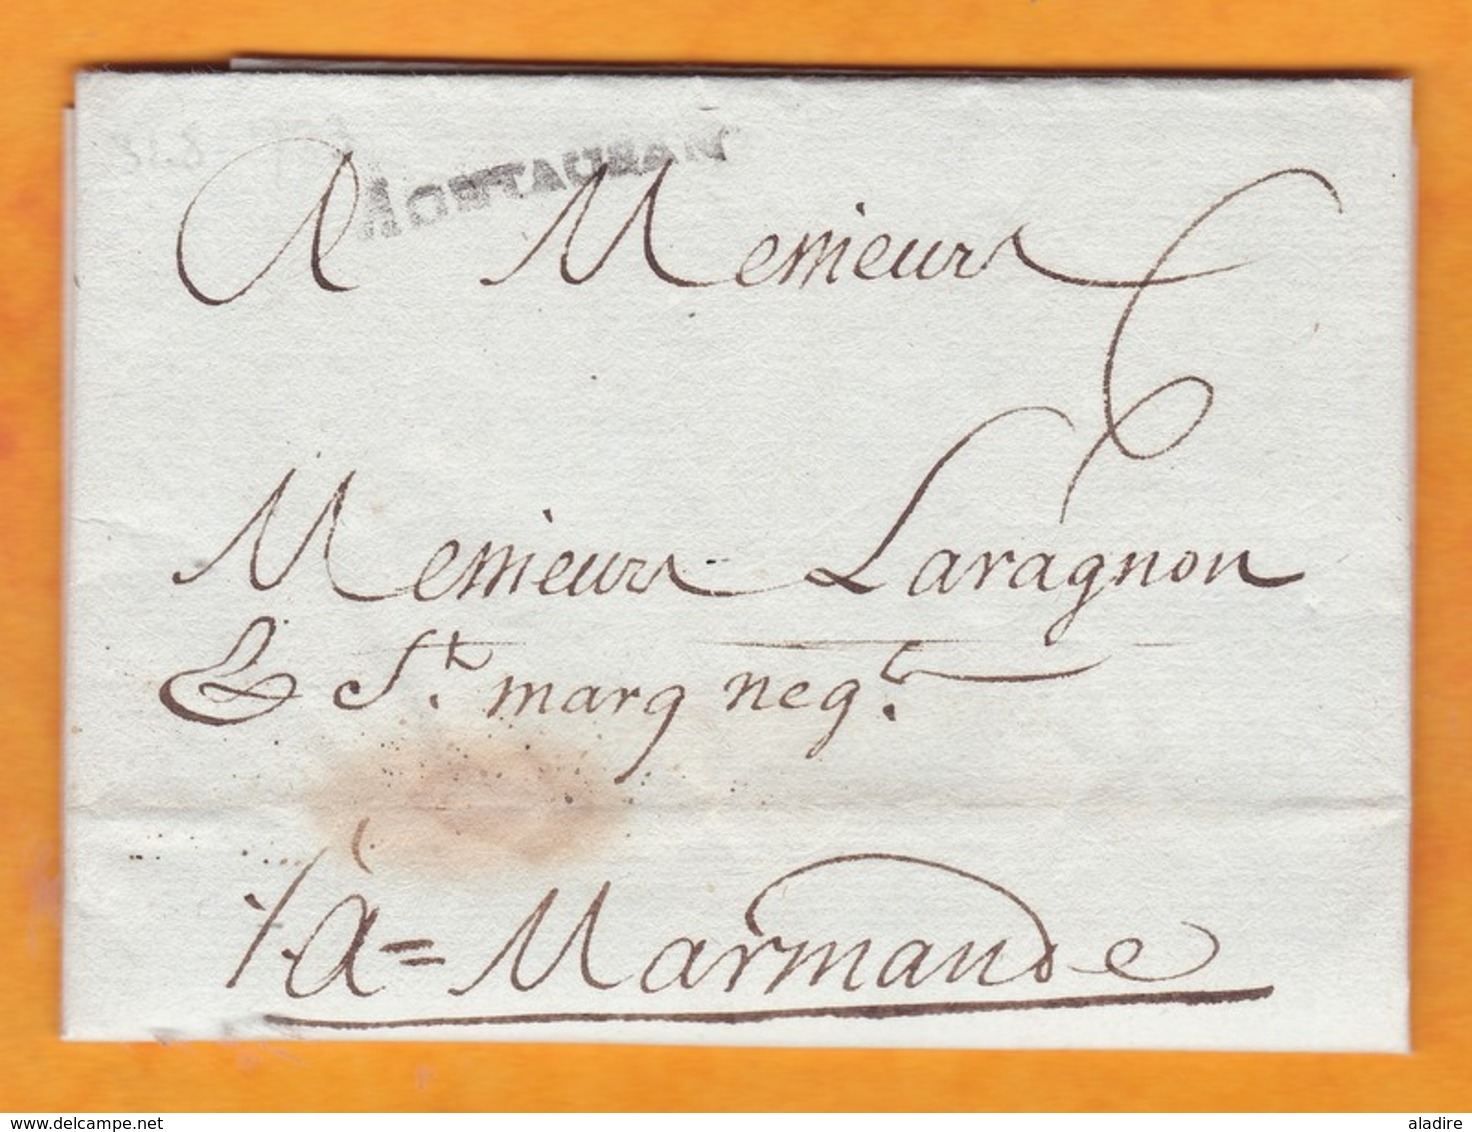 MONTAUBAN
A Messieurs
6
Messieurs Laragnon
& St. marq neg.t
à = Marmande
delcampe.net
aladire